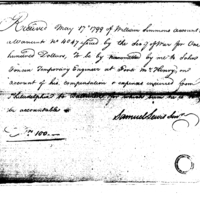 Received May 17th 1799 of William Simmons Account
warrant No 247 issued by the Sec.y of War for One
hundred Dollars, to be by me to John
Foncin Temporary Engineer at Fort McHenry, on
account of his compensation & expenses from
Philadelphia to for which Sum he is
to be accountable
100.—
Samuel Lewis Senr.